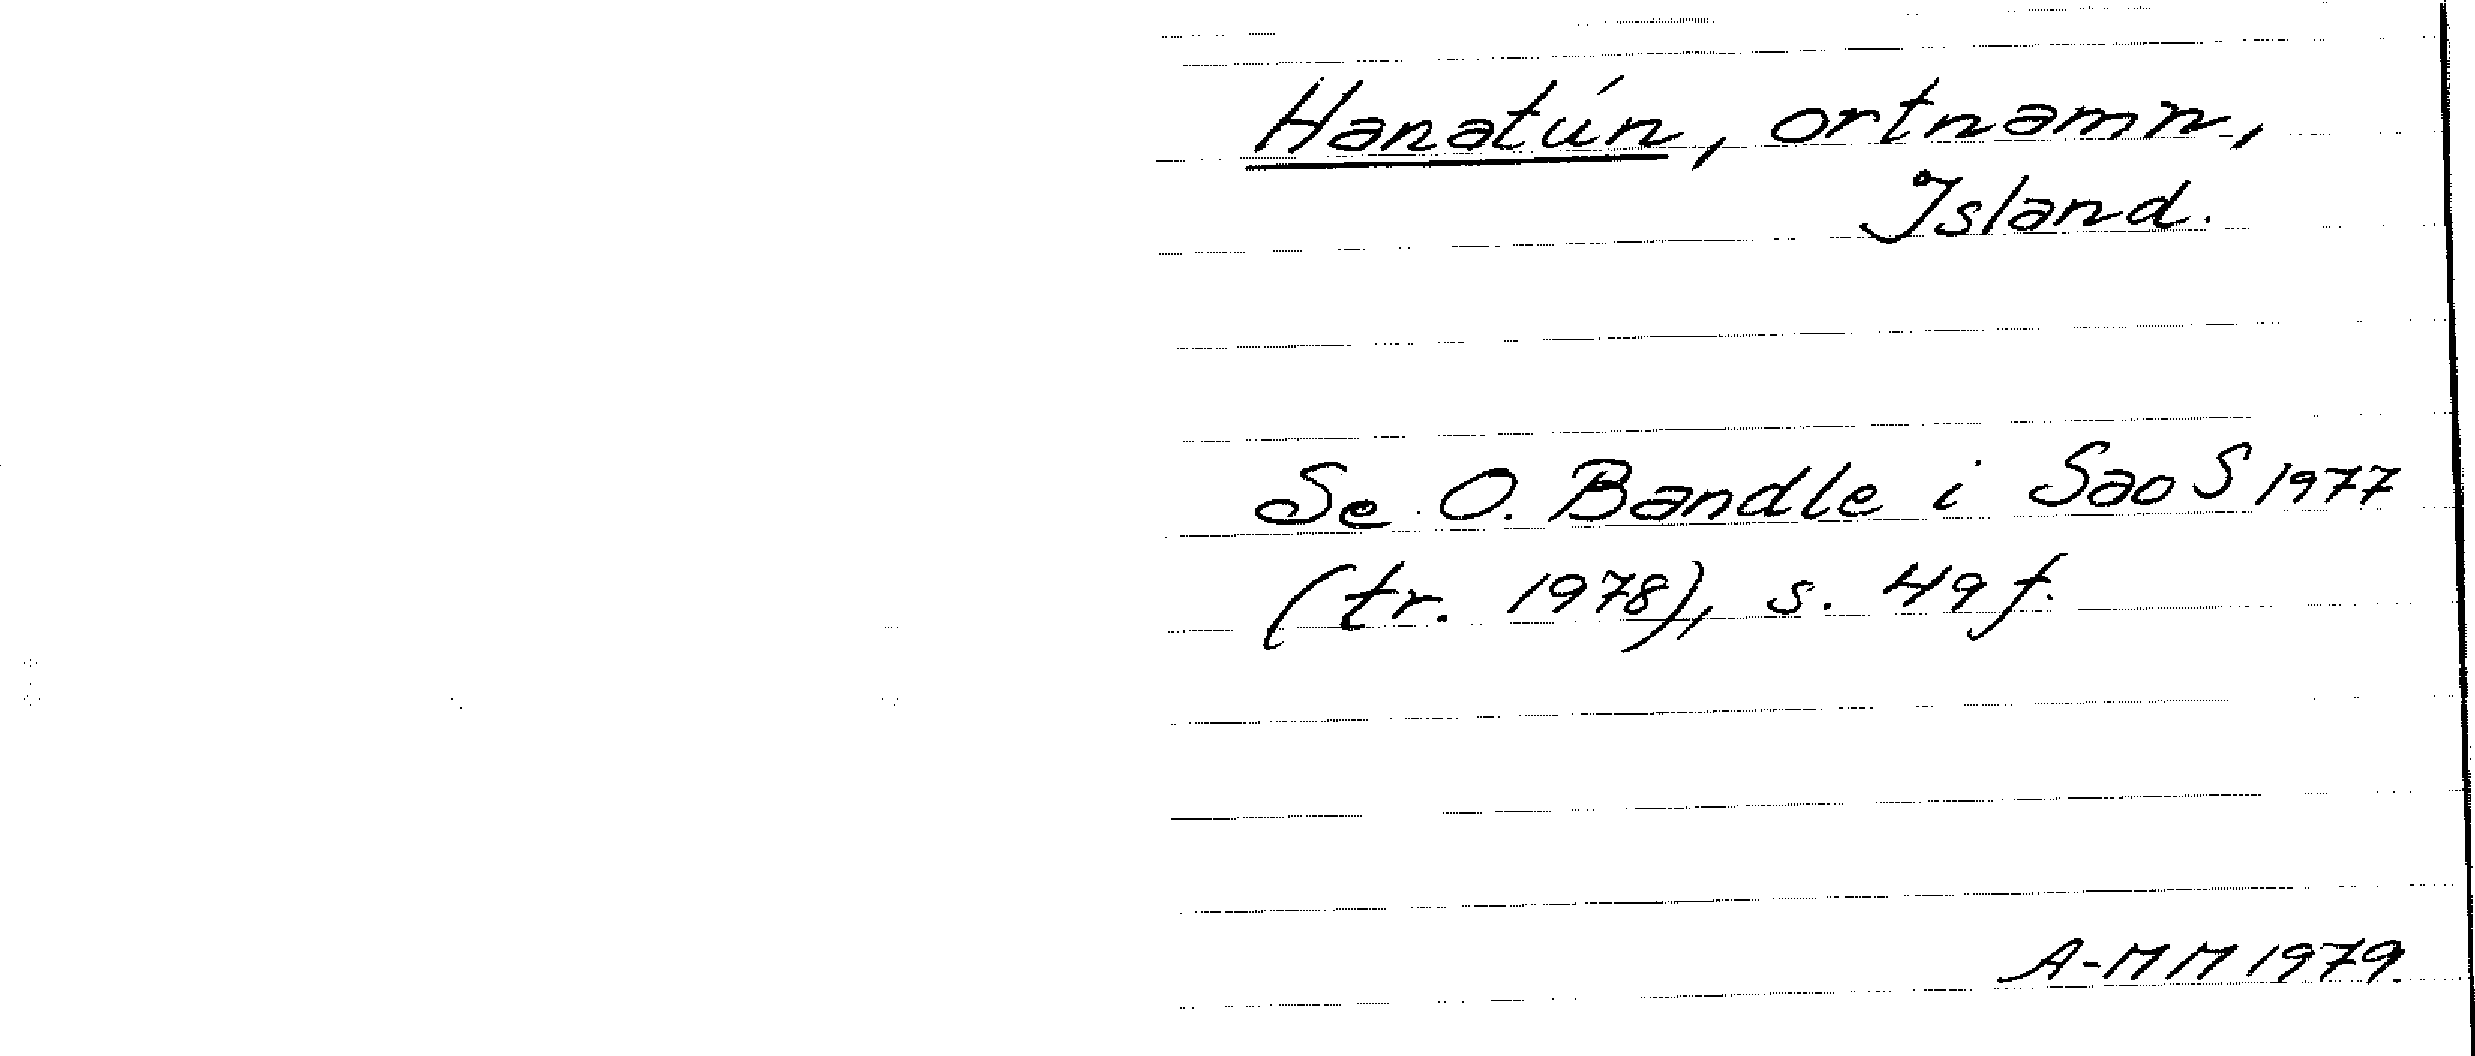 Hanatún, ortnamn,
Island.
Se O. Bandle i SaoS 1977
(tr. 1978), s. 49 f.
A-MM 1979.